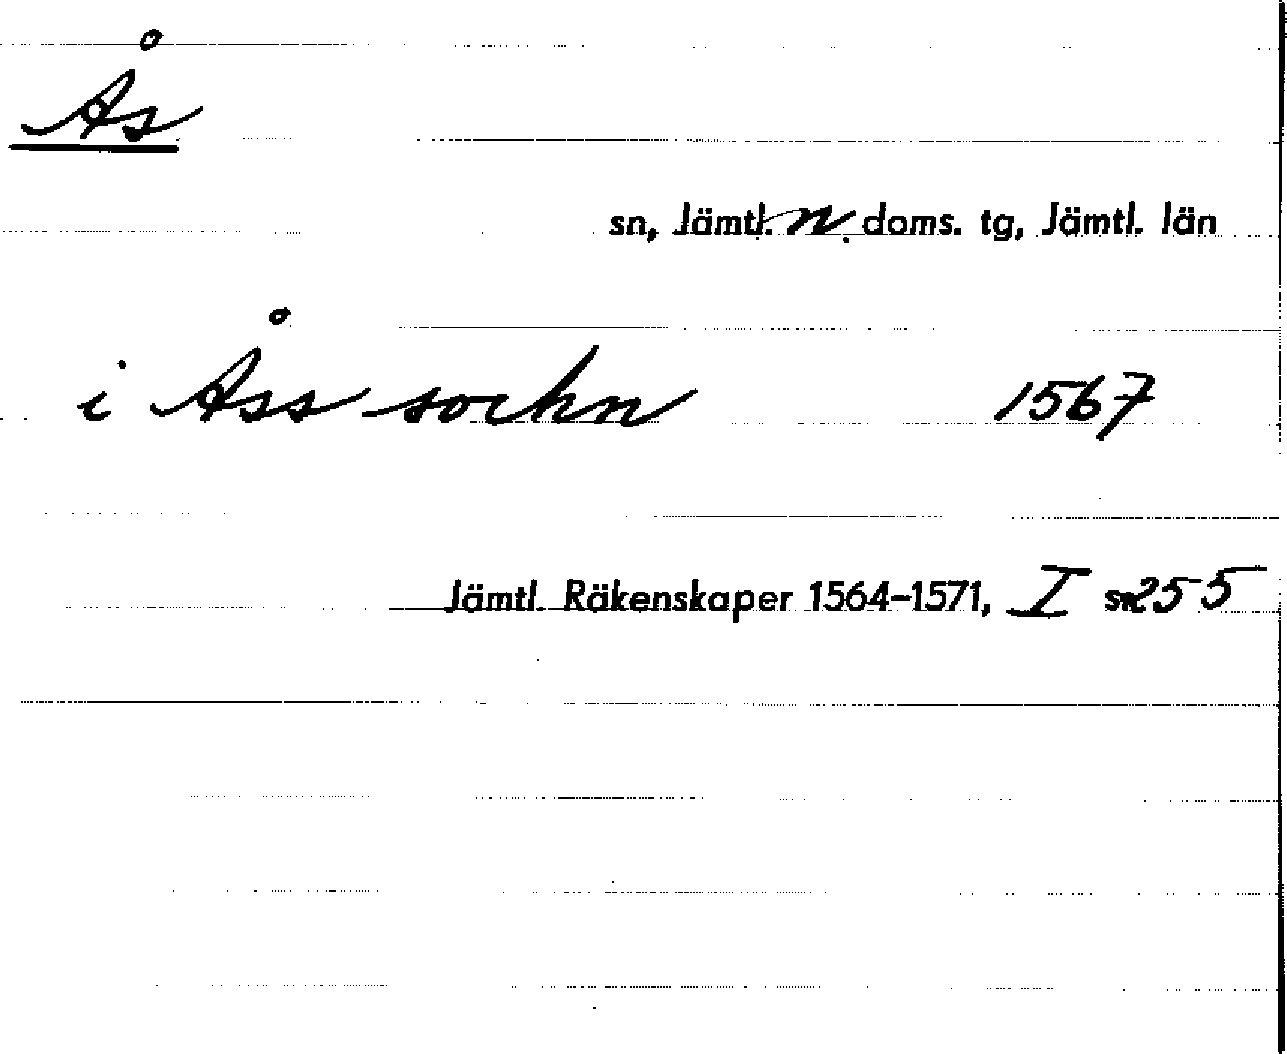 Ås
sn, Jämtl. n. doms. tg, Jämtl. län
i Åss sockn 1567
Jämtl. Räkenskaper 1564-1571, I s. 255